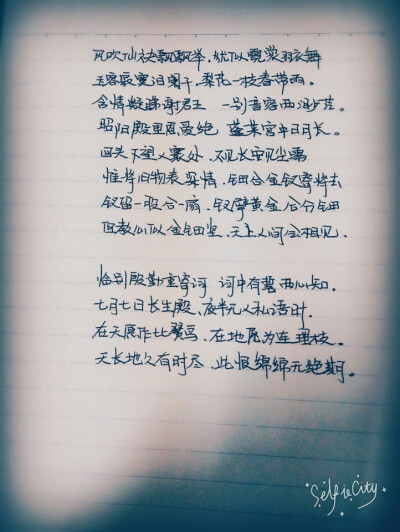 风吹仙袂飘飘举，犹似霓裳羽衣舞
玉容寂寞泪阑干，梨花一枝春带雨。
含情凝睇谢君王 一别音容两渺茫。
昭阳殿里恩爱绝 蓬莱宫中日月长。
回头下望人寰处 不见长安见尘雾
惟将旧物表深情，钿合金钗寄将去
钗留一股合一扇，钗擘黄金合分钿
但教心似金钿坚，天上人间会相见．
临别殷勤重寄词 词中有誓两心知．
七月七日长生殿、夜半无人私语时．
在天愿作比翼鸟、在地愿为连理枝。
天长地久有时尽、此恨绵绵无绝期。
Selfie City